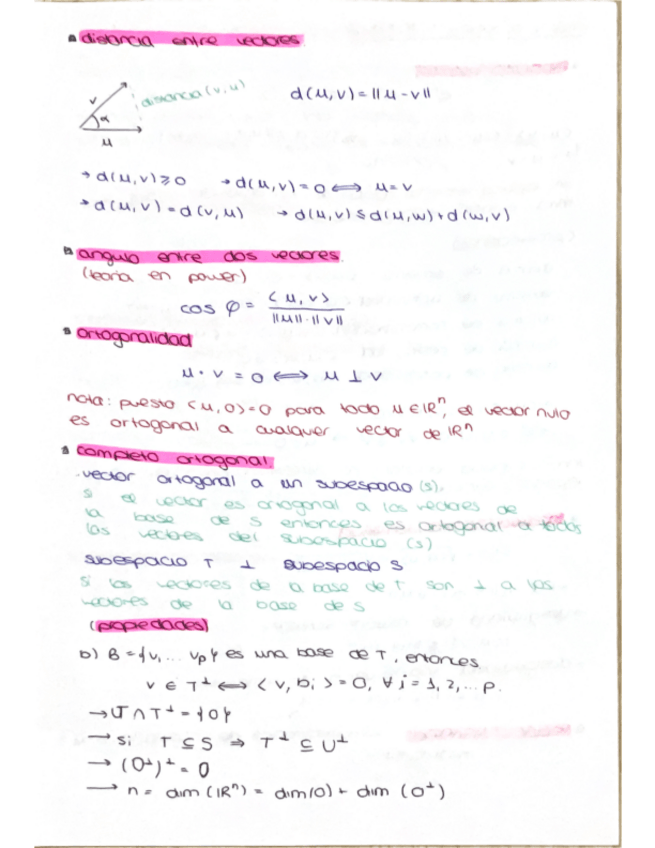 distancia entre vectores
v distancia (v, u)
α
u
d(u,v) = ||u - v||
→ d(u,v) ≥ 0 → d(u,v) = 0 ⟺ u = v
→ d(u,v) = d(v,u) → d(u,v) ≤ d(u,w) + d(w,v)
angulo entre dos vectores.
(teoria en power)
cos φ = <u, v> / ||u||·||v||
ortogonalidad
u · v = 0 ⟺ u ⊥ v
nota: puesto <u,0> = 0 para todo u ∈ ℝⁿ, el vector nulo
es ortogonal a cualquier vector de ℝⁿ
completo ortogonal.
-vector ortogonal a un subespacio (s).
si el vector es ortogonal a los vectores de
la base de s entonces es ortogonal a todos
los vectores del subespacio (s)
subespacio T ⊥ subespacio S
si los vectores de la base de T son ⊥ a los
vectores de la base de S
(propiedades)
b) B = {v, ... vp} es una base de T, entonces
v ∈ T^⊥ ⟺ <v, bi> = 0, ∀ j = 1, 2, ... p.
→ U ∩ T^⊥ = {0}
→ si T ⊆ S ⇒ T^⊥ ⊆ U^⊥
→ (O^⊥)^⊥ = O
→ n = dim (ℝⁿ) = dim(O) + dim (O^⊥)